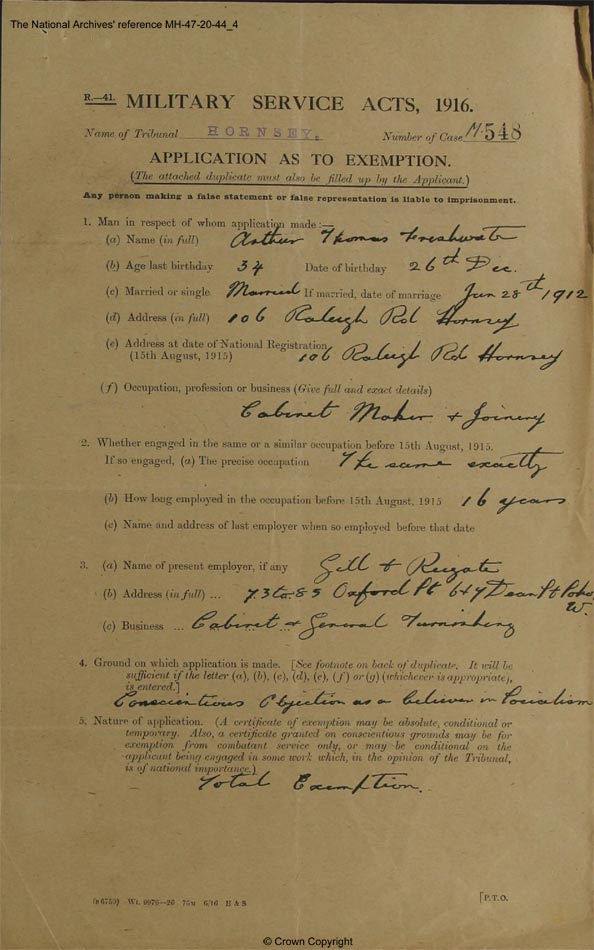 The National Archives' reference MH-47-20-44_4
R.—41. MILITARY SERVICE ACTS, 1916.
Name of Tribunal HORNSEY. Number of Case M 548
APPLICATION AS TO EXEMPTION.
(The attached duplicate must also be filled up by the Applicant.)
Any person making a false statement or false representation is liable to imprisonment.
1. Man in respect of whom application made :—
(a) Name (in full) Arthur Thomas Freshwater
(b) Age last birthday 34 Date of birthday 26th Dec.
(c) Married or single Married If married, date of marriage Jan 28th 1912
(d) Address (in full) 106 Raleigh Rd Hornsey
(e) Address at date of National Registration
(15th August, 1915) 106 Raleigh Rd Hornsey
(f) Occupation, profession or business (Give full and exact details)
Cabinet Maker + Joinery
2. Whether engaged in the same or a similar occupation before 15th August, 1915.
If so engaged, (a) The precise occupation The same exactly
(b) How long employed in the occupation before 15th August, 1915 16 years
(c) Name and address of last employer when so employed before that date
3. (a) Name of present employer, if any Gill & Reigate
(b) Address (in full) ... 73 to 85 Oxford St 6+7 Dean St Soho
W.
(c) Business ... Cabinet + General Furnishing
4. Ground on which application is made. [See footnote on back of duplicate. It will be
sufficient if the letter (a), (b), (c), (d), (e), (f) or (g) (whichever is appropriate),
is entered.]
Conscientious Objection as a believer in Socialism
5. Nature of application. (A certificate of exemption may be absolute, conditional or
temporary. Also, a certificate granted on conscientious grounds may be for
exemption from combatant service only, or may be conditional on the
applicant being engaged in some work which, in the opinion of the Tribunal,
is of national importance.)
Total Exemption.
(B 6759) Wt. 9979—26 75M 6/16 H & S [P.T.O.
© Crown Copyright